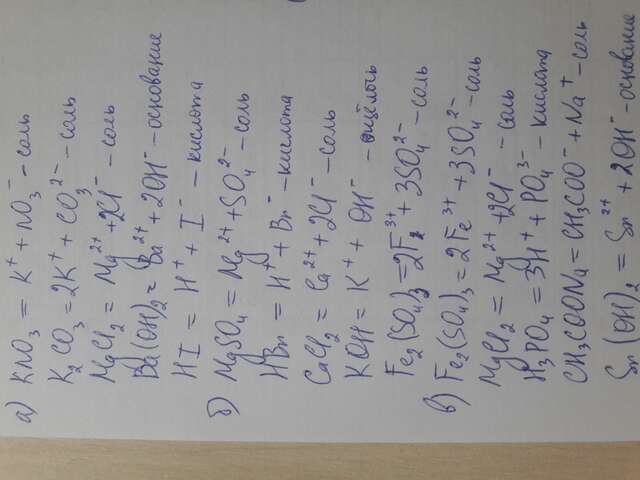 а) KNO₃ = K⁺ + NO₃⁻ - соль
K₂CO₃ = 2K⁺ + CO₃²⁻ - соль
MgCl₂ = Mg²⁺ + 2Cl⁻ - соль
Ba(OH)₂ = Ba²⁺ + 2OH⁻ - основание
HI = H⁺ + I⁻ - кислота
б) MgSO₄ = Mg²⁺ + SO₄²⁻ - соль
HBr = H⁺ + Br⁻ - кислота
CaCl₂ = Ca²⁺ + 2Cl⁻ - соль
KOH = K⁺ + OH⁻ - щёлочь
Fe₂(SO₄)₃ = 2Fe³⁺ + 3SO₄²⁻ - соль
в) Fe₂(SO₄)₃ = 2Fe³⁺ + 3SO₄²⁻ - соль
MgCl₂ = Mg²⁺ + 2Cl⁻ - соль
H₃PO₄ = 3H⁺ + PO₄³⁻ - кислота
CH₃COONa = CH₃COO⁻ + Na⁺ - соль
Sn(OH)₂ = Sn²⁺ + 2OH⁻ - основание